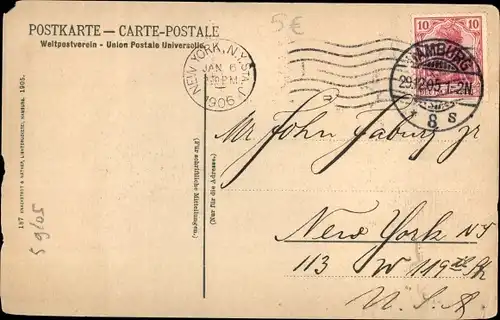 5€
POSTKARTE — CARTE-POSTALE
Weltpostverein - Union Postale Universelle
10 10
NEW YORK, N.Y. STA. J
JAN 6
1906
HAMBURG
29.12.05. 1-2N
* 8 s
Mr John Fabury jr
New York NY
113 W 119th St
U. S. A.
(Für schriftliche Mitteilungen.)
(Nur für die Adresse.)
187 KNACKSTEDT & NÄTHER, LICHTDRUCKEREI, HAMBURG. 1905.
5 9/05